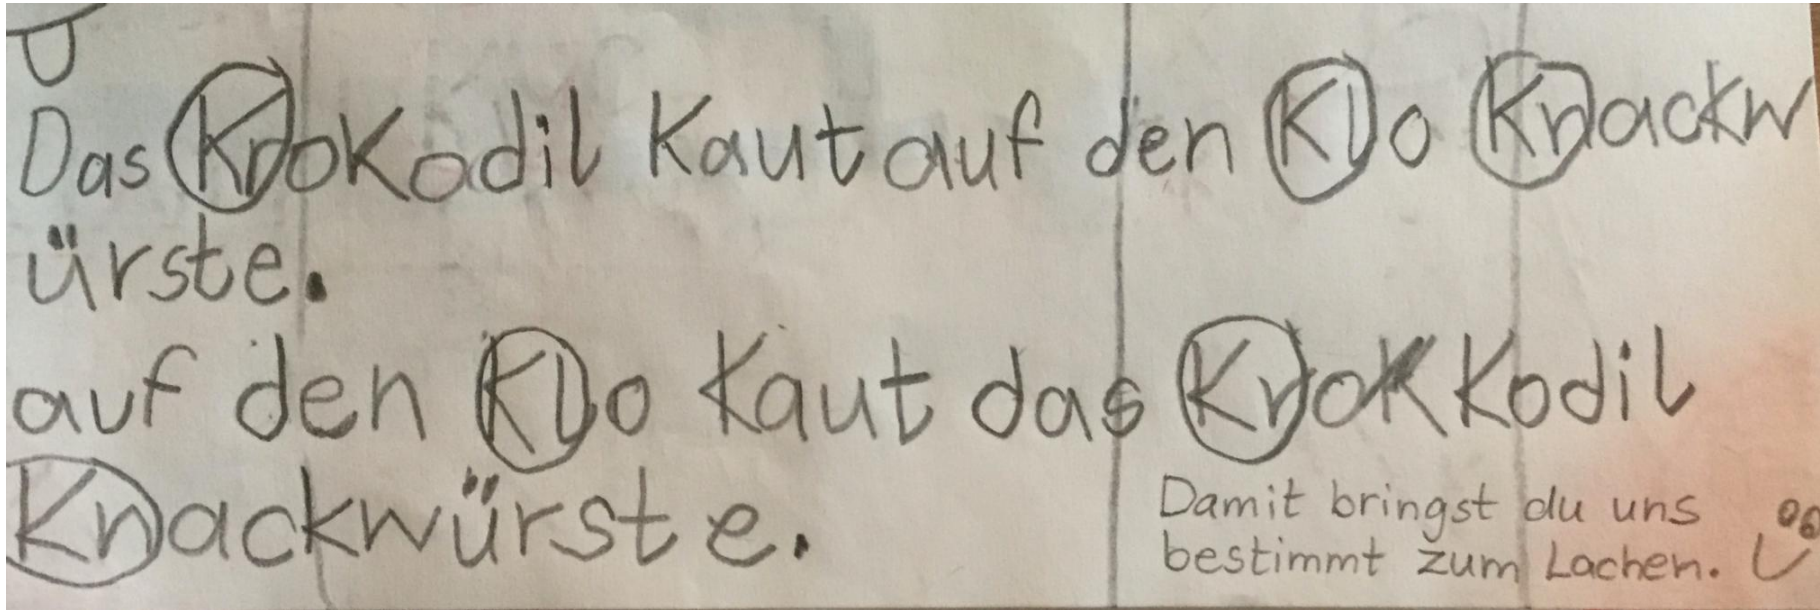 Das Krokodil kaut auf den Klo Knackw
ürste.
auf den Klo kaut das Krokkodil
Knackwürste.
Damit bringst du uns
bestimmt zum Lachen.